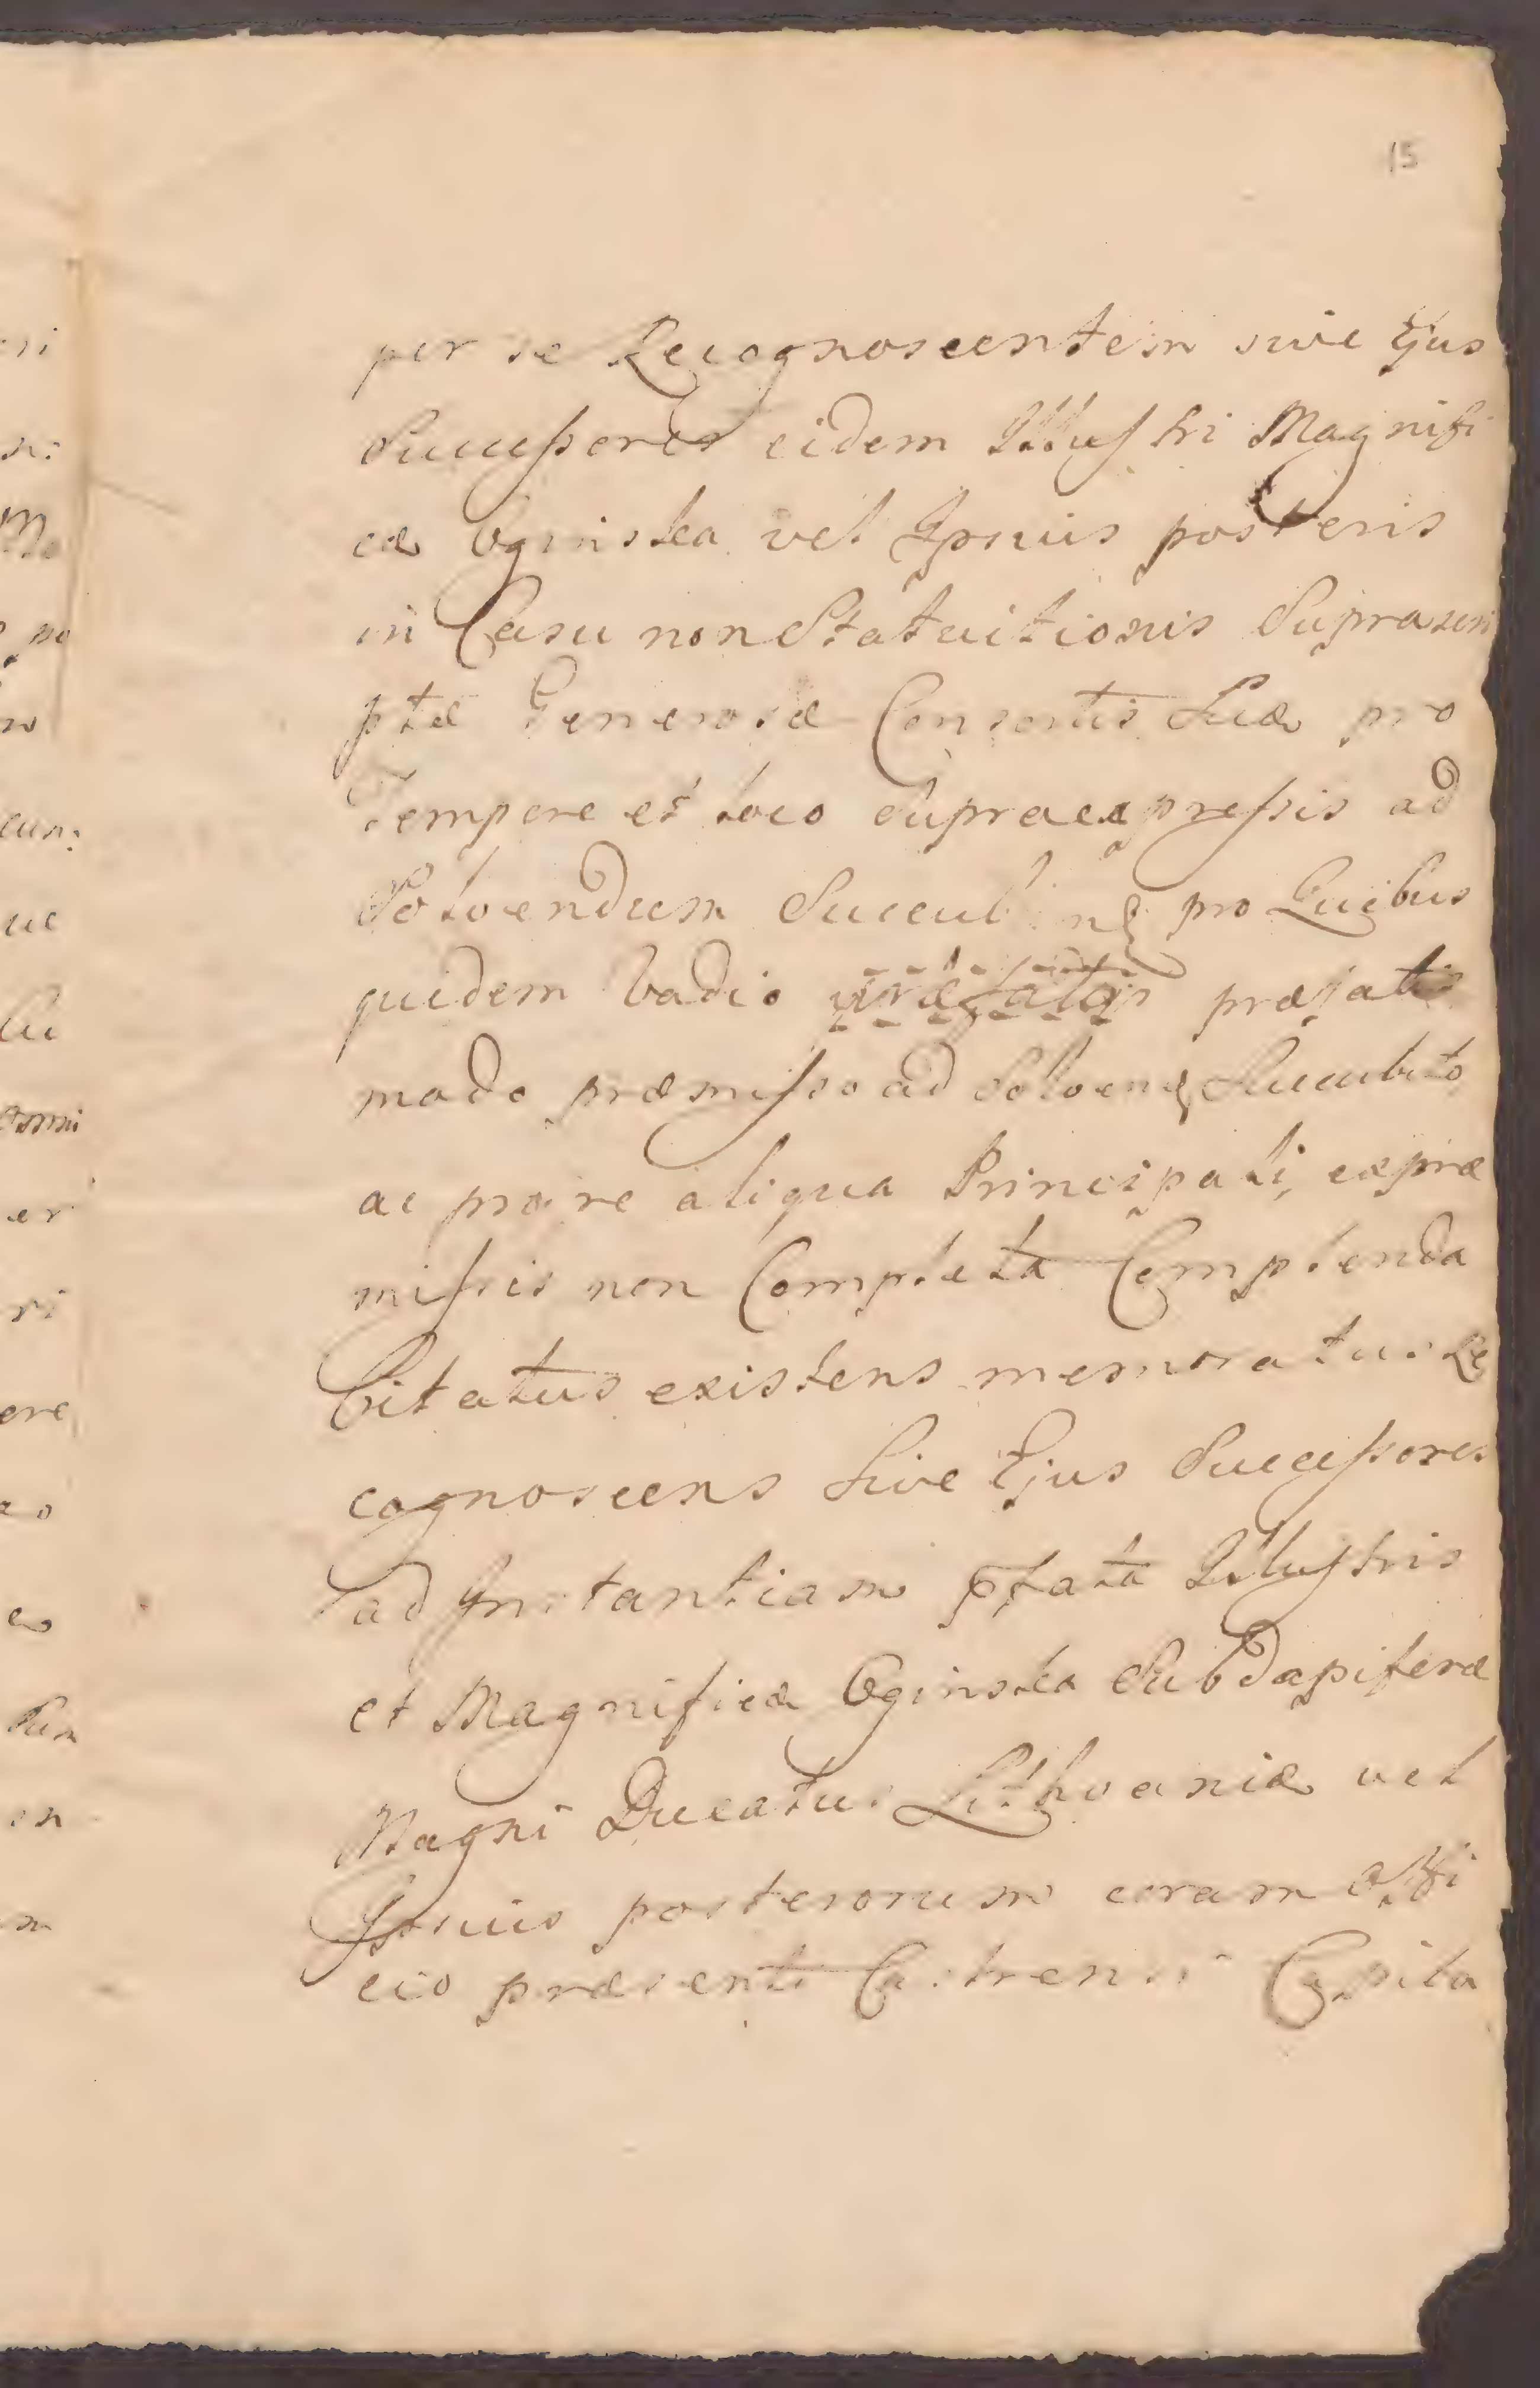 15
per se Recognoscentem sive Ejus
Successores eidem Illustri Magnifi
cæ Oginska vel Ipsius posteris
in Casu non Statuitionis Suprascri
ptæ Generosæ Consortis Suæ pro
Tempore et loco supraexpressis ad
Solvendum Succub pro Quibus
quidem Vadio præfatis
modo præmisso ad Solvend Succubito
ac pro re aliqua Principali, expræ
missis non Completa Complenda
Citatus existens memoratus Re
cognoscens Sive Ejus Successores
ad Instantiam pfata Illustris
et Magnificæ Oginska Subdapiferæ
Magni Ducatus Lithvaniæ vel
Ipsius posterorum coram Offi
cio præsenti Castrensi Capita